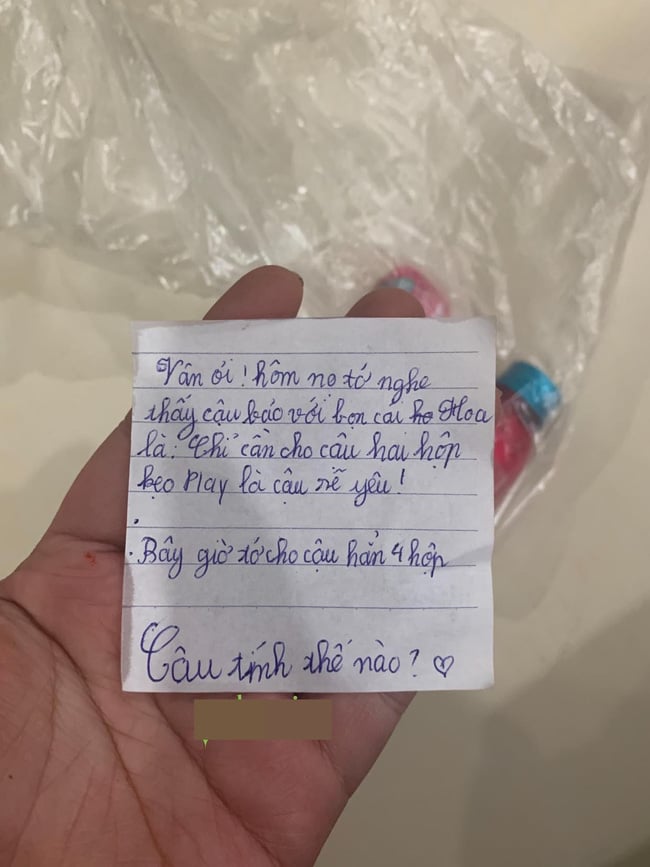 Vân ơi! hôm nọ tớ nghe
thấy cậu bảo với bọn cái Hoa
là: Chỉ cần cho cậu hai hộp
kẹo Play là cậu sẽ yêu!
.
. Bây giờ tớ cho cậu hẳn 4 hộp
Cậu tính thế nào? ♡